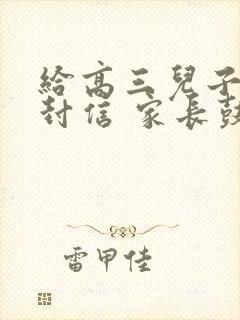 給高三兒子
封信 家長鼓
雷甲佳